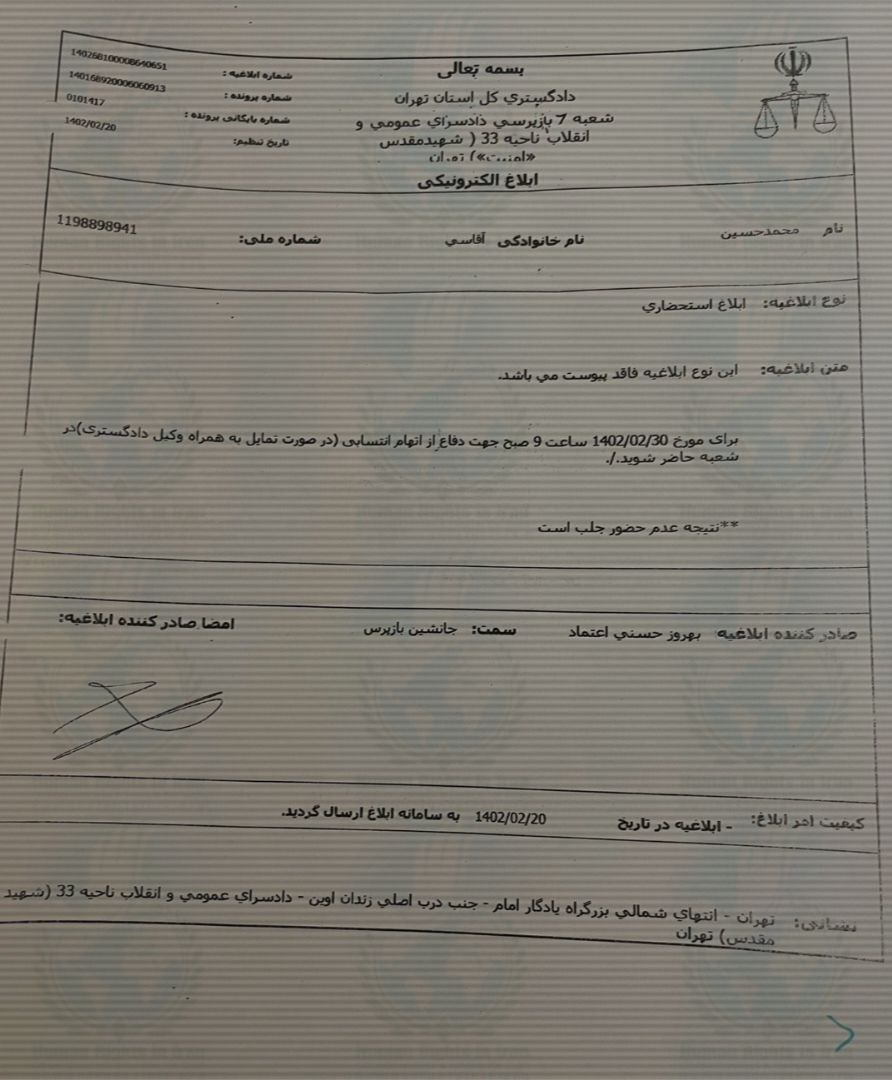 بسمه تعالی
دادگستري کل استان تهران
شعبه 7 بازپرسي دادسراي عمومي و
انقلاب ناحیه 33 ( شهیدمقدس
«امنیت») تهران
شماره ابلاغیه : 140268100008640651
شماره پرونده : 140168920006060913
شماره بایگانی پرونده : 0101417
تاریخ تنظیم: 1402/02/20
ابلاغ الکترونیکی
نام محمدحسین نام خانوادگی آقاسي شماره ملی: 1198898941
نوع ابلاغیه: ابلاغ استحضاري
متن ابلاغیه: این نوع ابلاغیه فاقد پیوست مي باشد.
برای مورخ 1402/02/30 ساعت 9 صبح جهت دفاع از اتهام انتسابی (در صورت تمایل به همراه وکیل دادگستری)در
شعبه حاضر شوید./.
**نتیجه عدم حضور جلب است
صادر کننده ابلاغیه بهروز حسني اعتماد سمت: جانشین بازپرس امضا صادر کننده ابلاغیه:
کیفیت امر ابلاغ: - ابلاغیه در تاریخ 1402/02/20 به سامانه ابلاغ ارسال گردید.
نشانی: تهران - انتهاي شمالي بزرگراه یادگار امام - جنب درب اصلي زندان اوین - دادسراي عمومي و انقلاب ناحیه 33 (شهید
مقدس) تهران